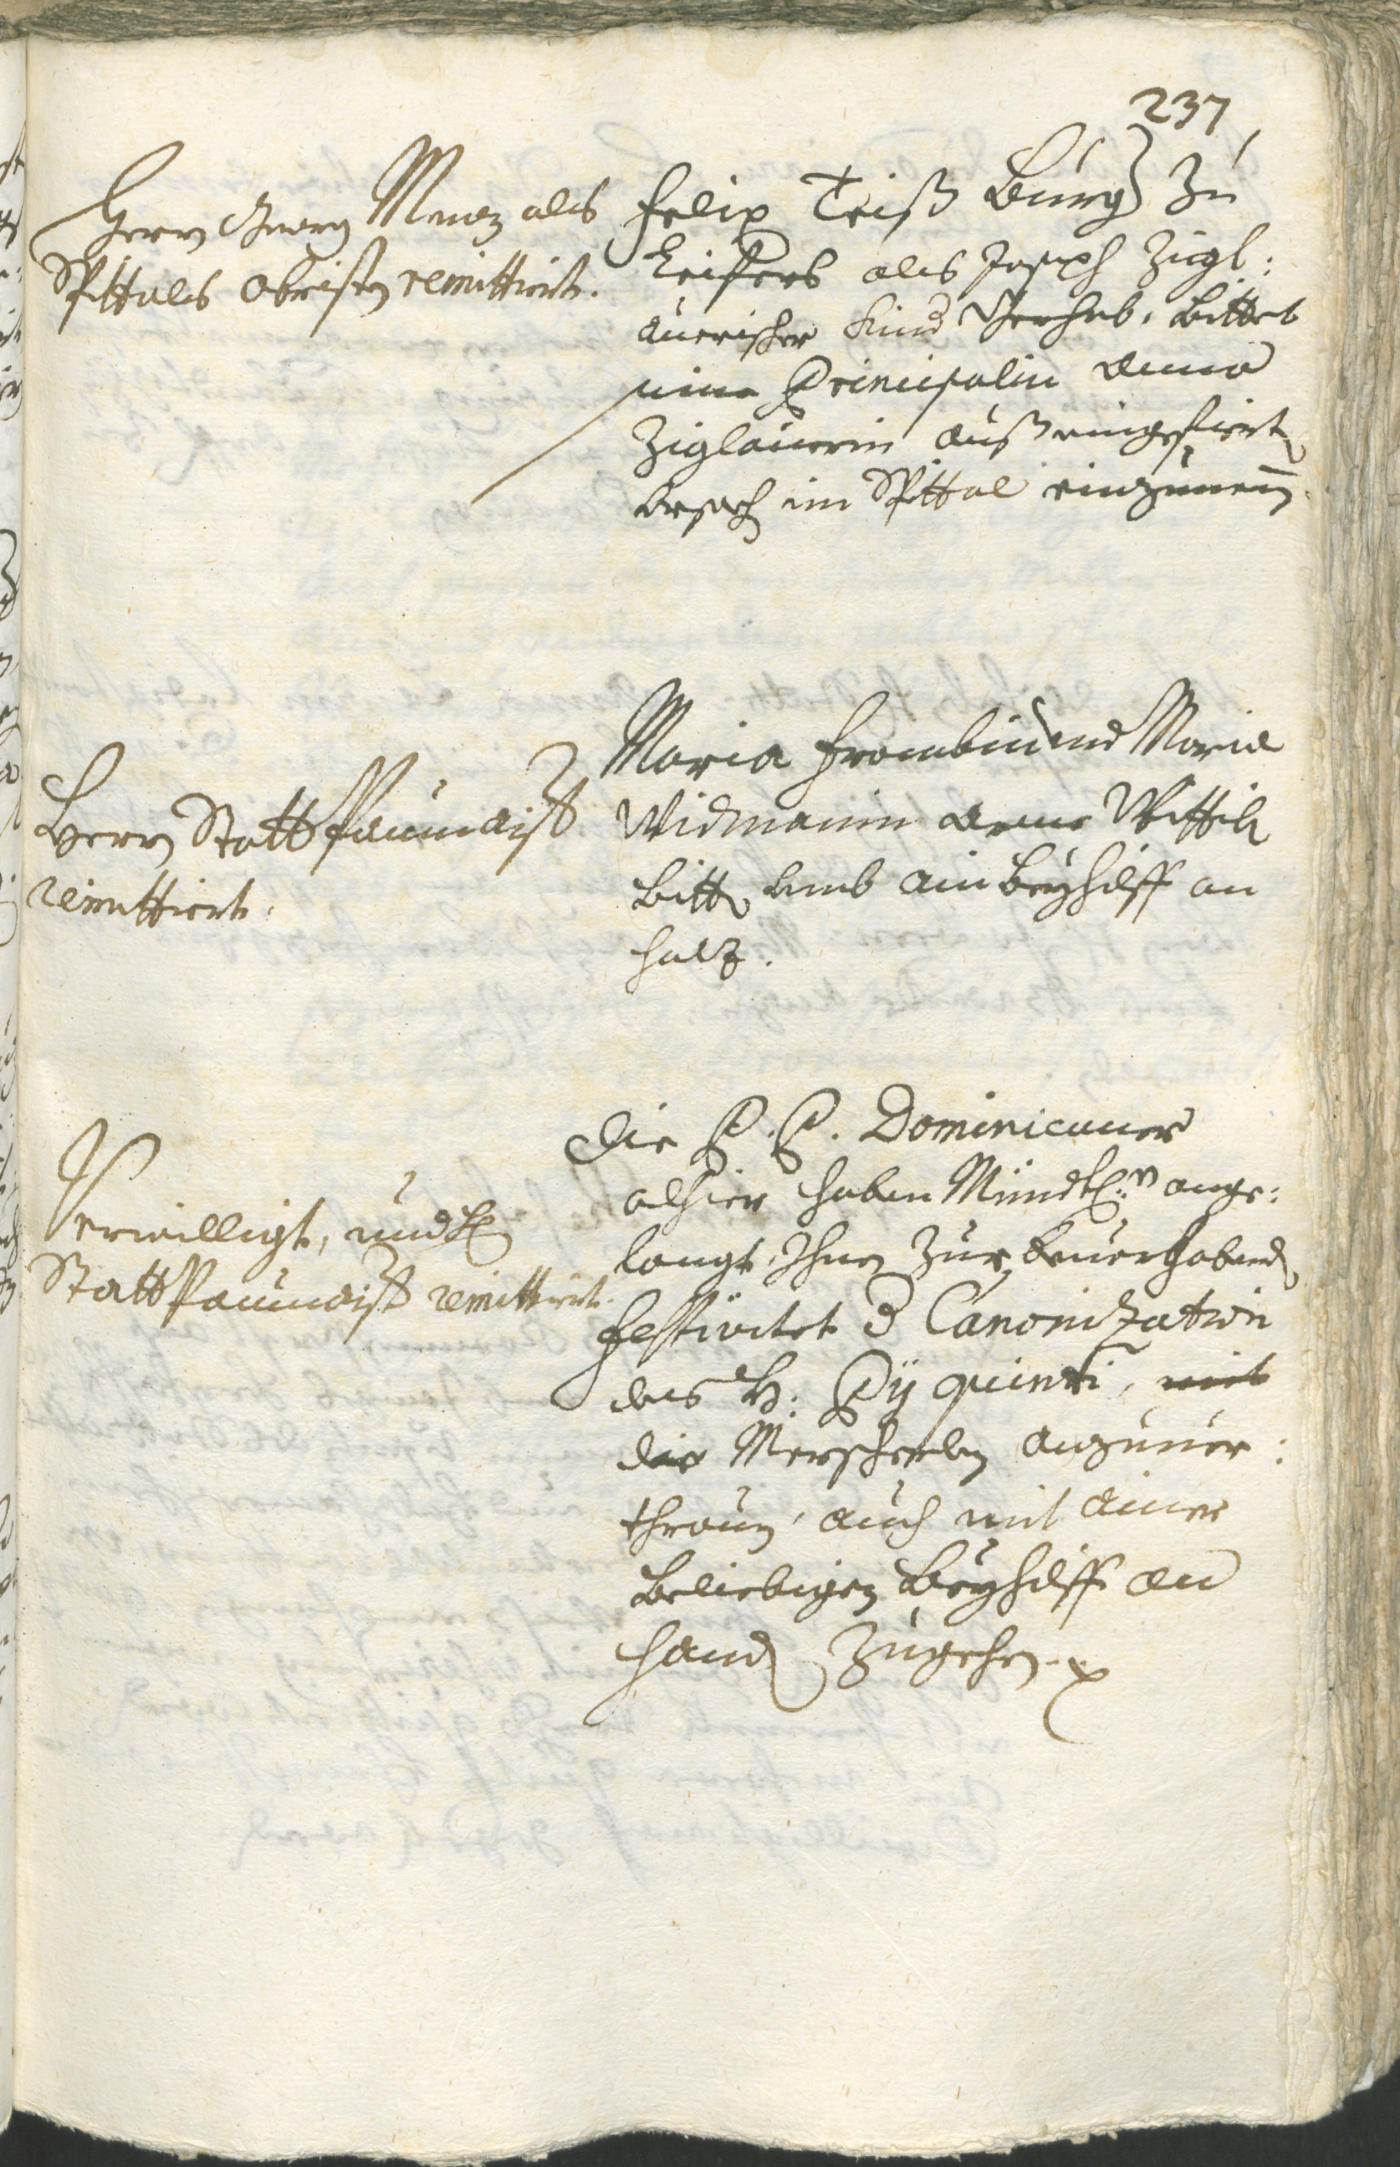 237
Herrn Georg Menz als
Spittals obristen remittiert.
Felix Teiß Burger zu
Leifers als Joseph Zigl:
auerischer Kind Gerhab, bittet
seine Principalin Anna
Ziglauerin auß eingefierten
Ursach im Spittal einzunemen
Herrn Statt Paumaister
remittiert.
Maria Frombin und Maria
Widmanin arme Wittib
bitten umb ain Beyhilff an
holz.
Verwilligt, und H
Statt Paumaister remittiert.
Die P. P. Dominicaner
alhier haben Mündtl:n ange:
langt, Ihnen zur bevorhabenden
Festivitet d Canonization
des H: Pij quinti, mit
die Merscherlen anzuver:
thrauen, auch mit ainer
beliebigen Beyhilff an
hand zugehen.